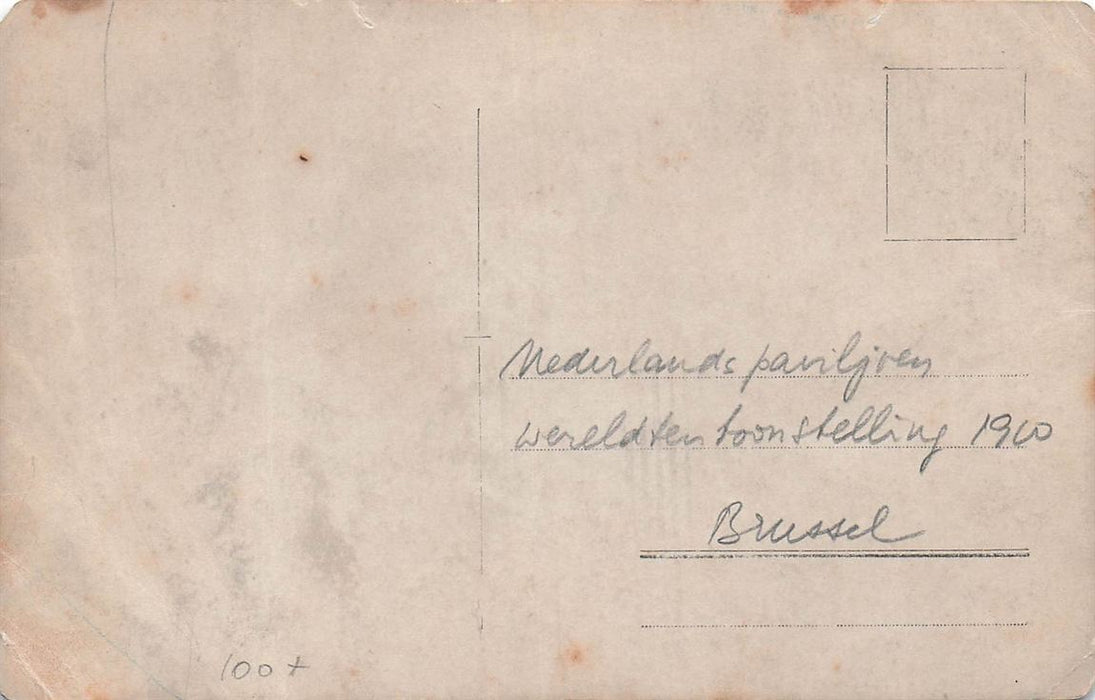 Nederlands paviljoen
wereldtentoonstelling 1910
Brussel
100 +